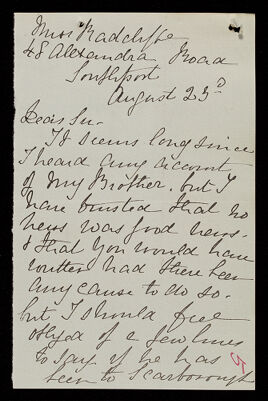 Miss Radcliffe
48 Alexandra Road
Southport
August 23d
Dear Sir -
It seems long since
I heard any account
of my Brother, but I
have trusted that no
news was good news -
& that you would have
written had there been
any cause to do so -
but I should feel
obliged if a few lines
to say if he has
been to Scarborough